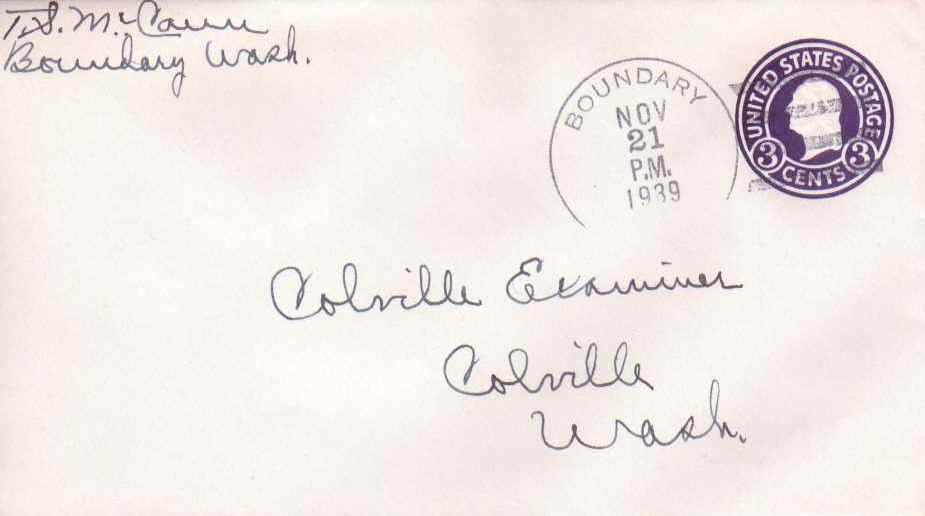 T. S. McCann
Boundary Wash.
BOUNDARY
NOV
21
P.M.
1939
UNITED STATES POSTAGE
3 CENTS 3
Colville Examiner
Colville
Wash.